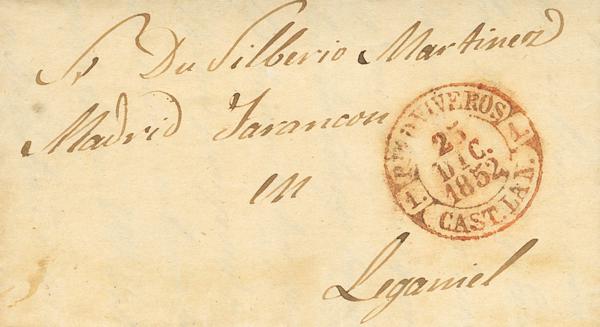 Sr Dn Silberio Martinez
Madrid Tarancon
en
Leganiel
VIVEROS
25
DIC.
1852
1.
1.
CAST. LA N.